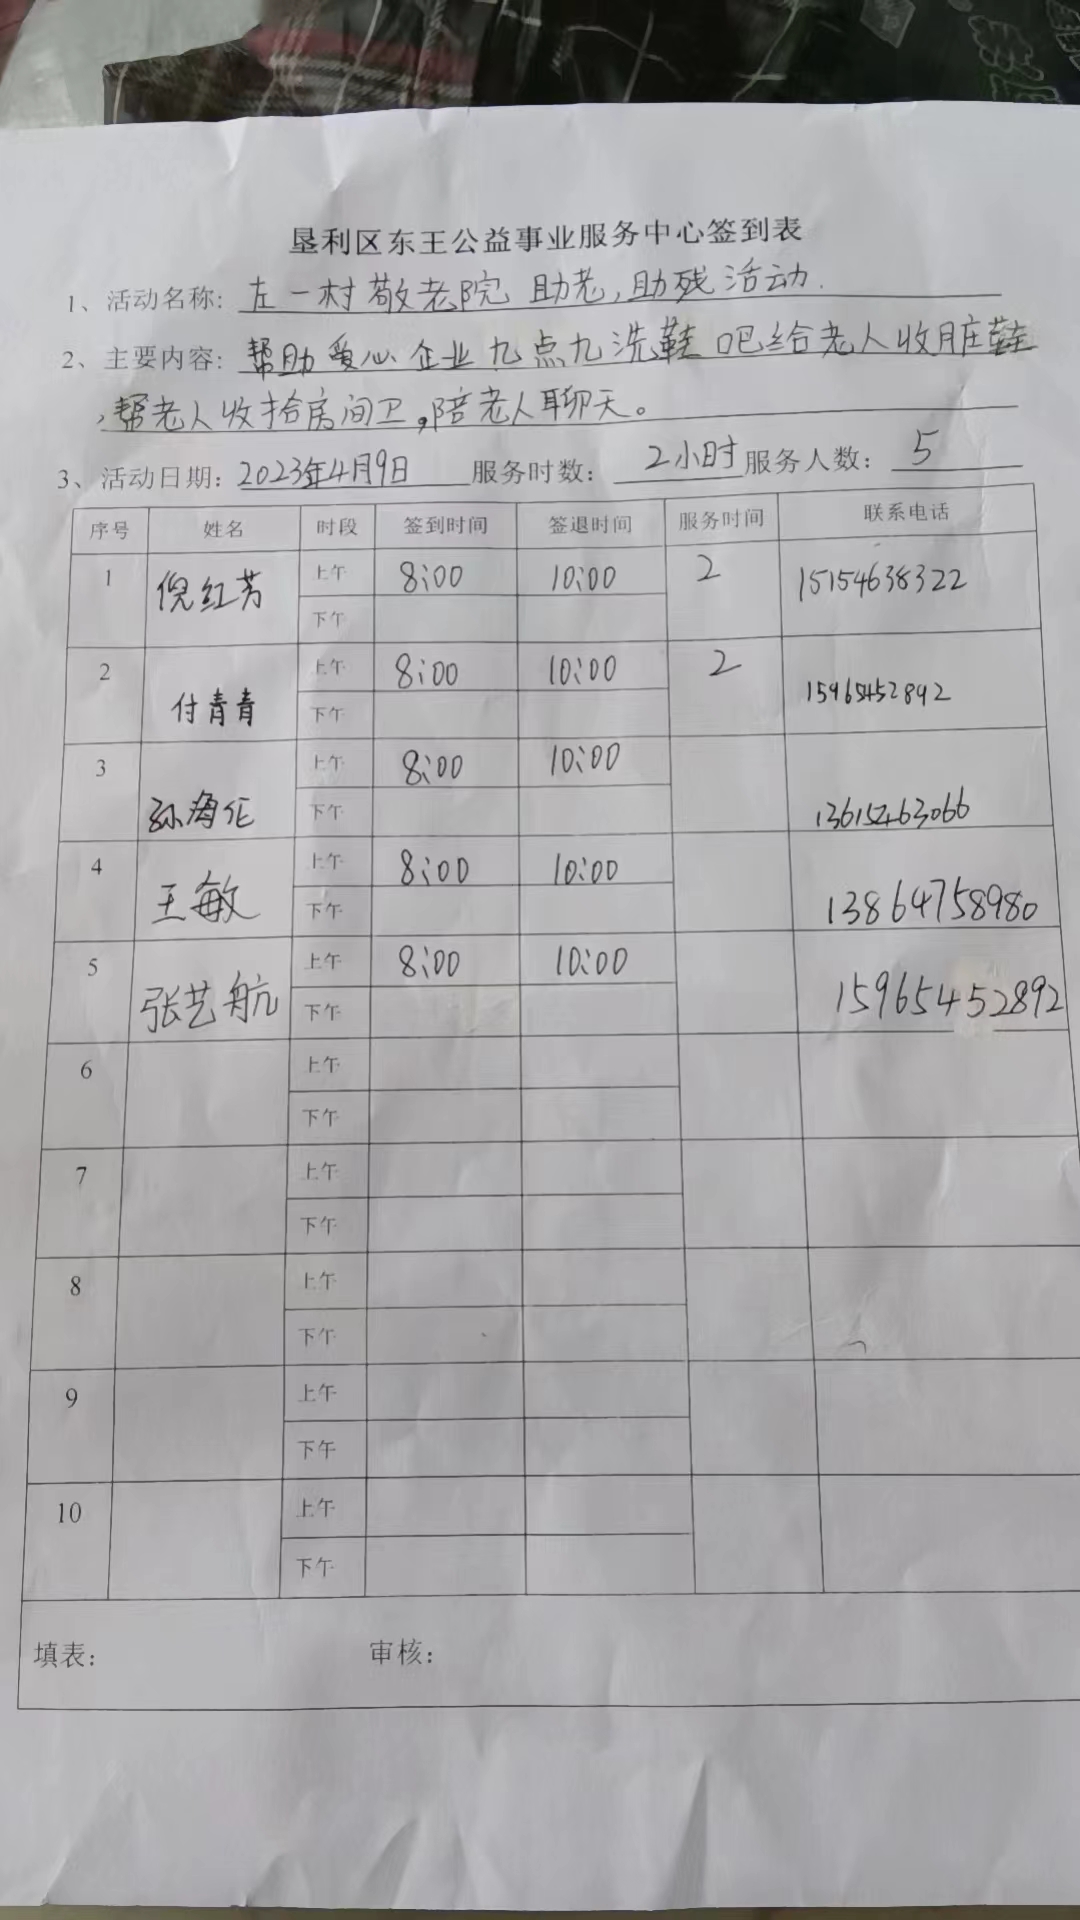 垦利区东王公益事业服务中心签到表
1、活动名称: 左一村敬老院 助老,助残活动.
2、主要内容: 帮助爱心企业九点九洗鞋吧给老人收脏鞋
,帮老人收拾房间卫。陪老人聊天。
3、活动日期: 2023年4月9日 服务时数: 2小时 服务人数: 5
序号 姓名 时段 签到时间 签退时间 服务时间 联系电话
1 倪红芳 上午 8:00 10:00 2 15154638322
下午
2 付青青 上午 8:00 10:00 2 15965452892
下午
3 孙海 上午 8:00 10:00 13615463066
下午
4 王敏 上午 8:00 10:00 13864758980
下午
5 张艺航 上午 8:00 10:00 15965452892
下午
6 上午
下午
7 上午
下午
8 上午
下午
9 上午
下午
10 上午
下午
填表: 审核: